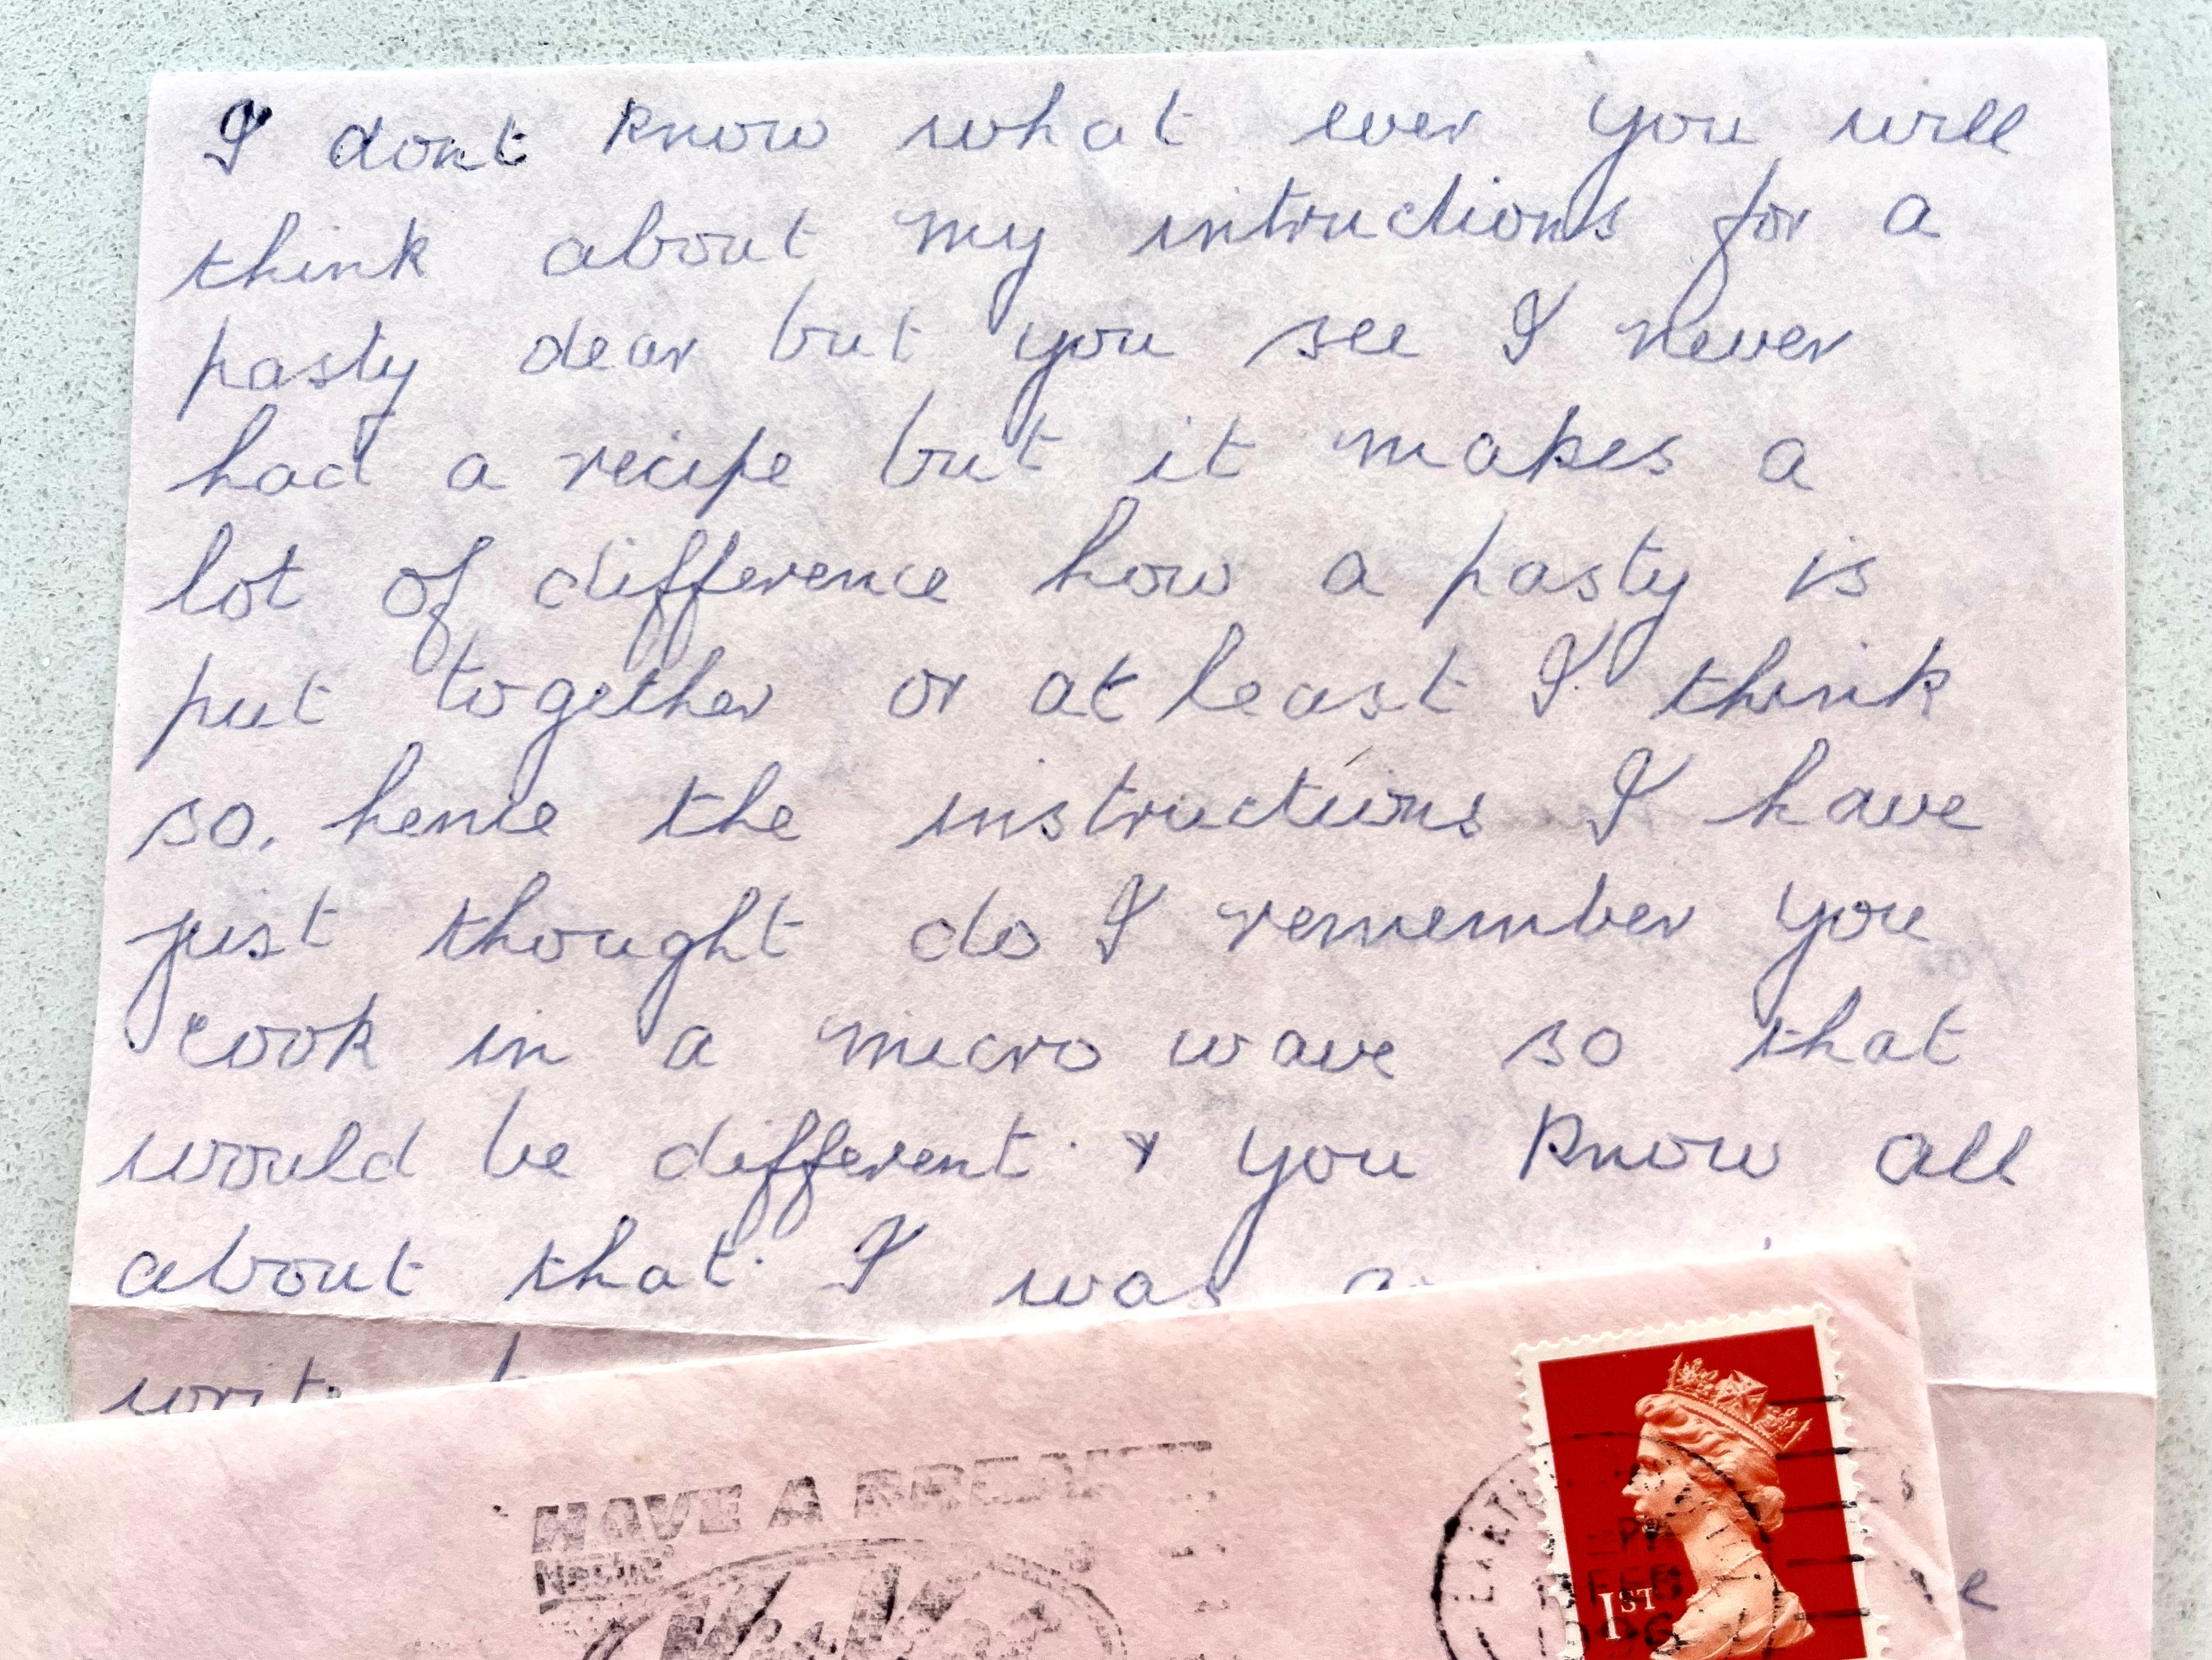 I dont know what ever you will
think about my intructions for a
pasty dear but you see I never
had a recipe but it makes a
lot of difference how a pasty is
put together or at least I think
so. hence the instructions I have
just thought do I remember you
cook in a micro wave so that
would be different. & you know all
about that. I was
HAVE A BREAK
Nestlé
1ST
FEB